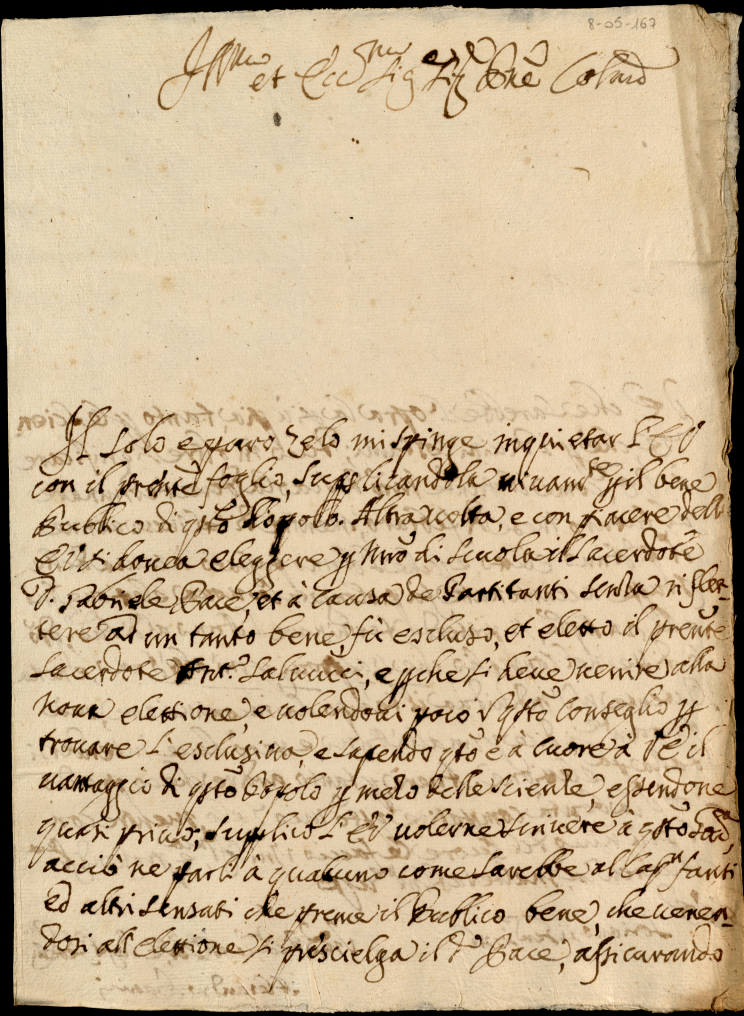 8-05-167
Ill.mo et Ecc.mo Sig.re Sig.re P̄ne Col.mo
Il solo e puro zelo mi spinge inquietar l'E V
con il pr̄nte foglio, supplicandola vivam.te p̱ il bene
Publico di qsto Popolo. Altra volta, e con piacere dell'
EV si dovea eleggere p̱ Mro di scuola il Sacerdote
D. Gabriele Pace, et à causa de Partitanti senza riflet-
tere ad un tanto bene, fù escluso, et eletto il prente
Sacerdote Ant.o Salvucci, e p̱che si deve venire alla
nova elettione, e volendovi poco qsto Conseglio p̱
trovare l'esclusiva, e sapendo qto è à cuore à VE il
vantaggio di qsto Popolo p̱ mezo delle scienze, essendone
quasi privo, supplico l'EV volerne scrivere à qsto
acciò ne parli à qualcuno come sarebbe al Cap.n Fanti
ed altri sensati che preme il Publico bene, che venen-
dosi all'elettione si prescielga il d.o Pace, assicurando